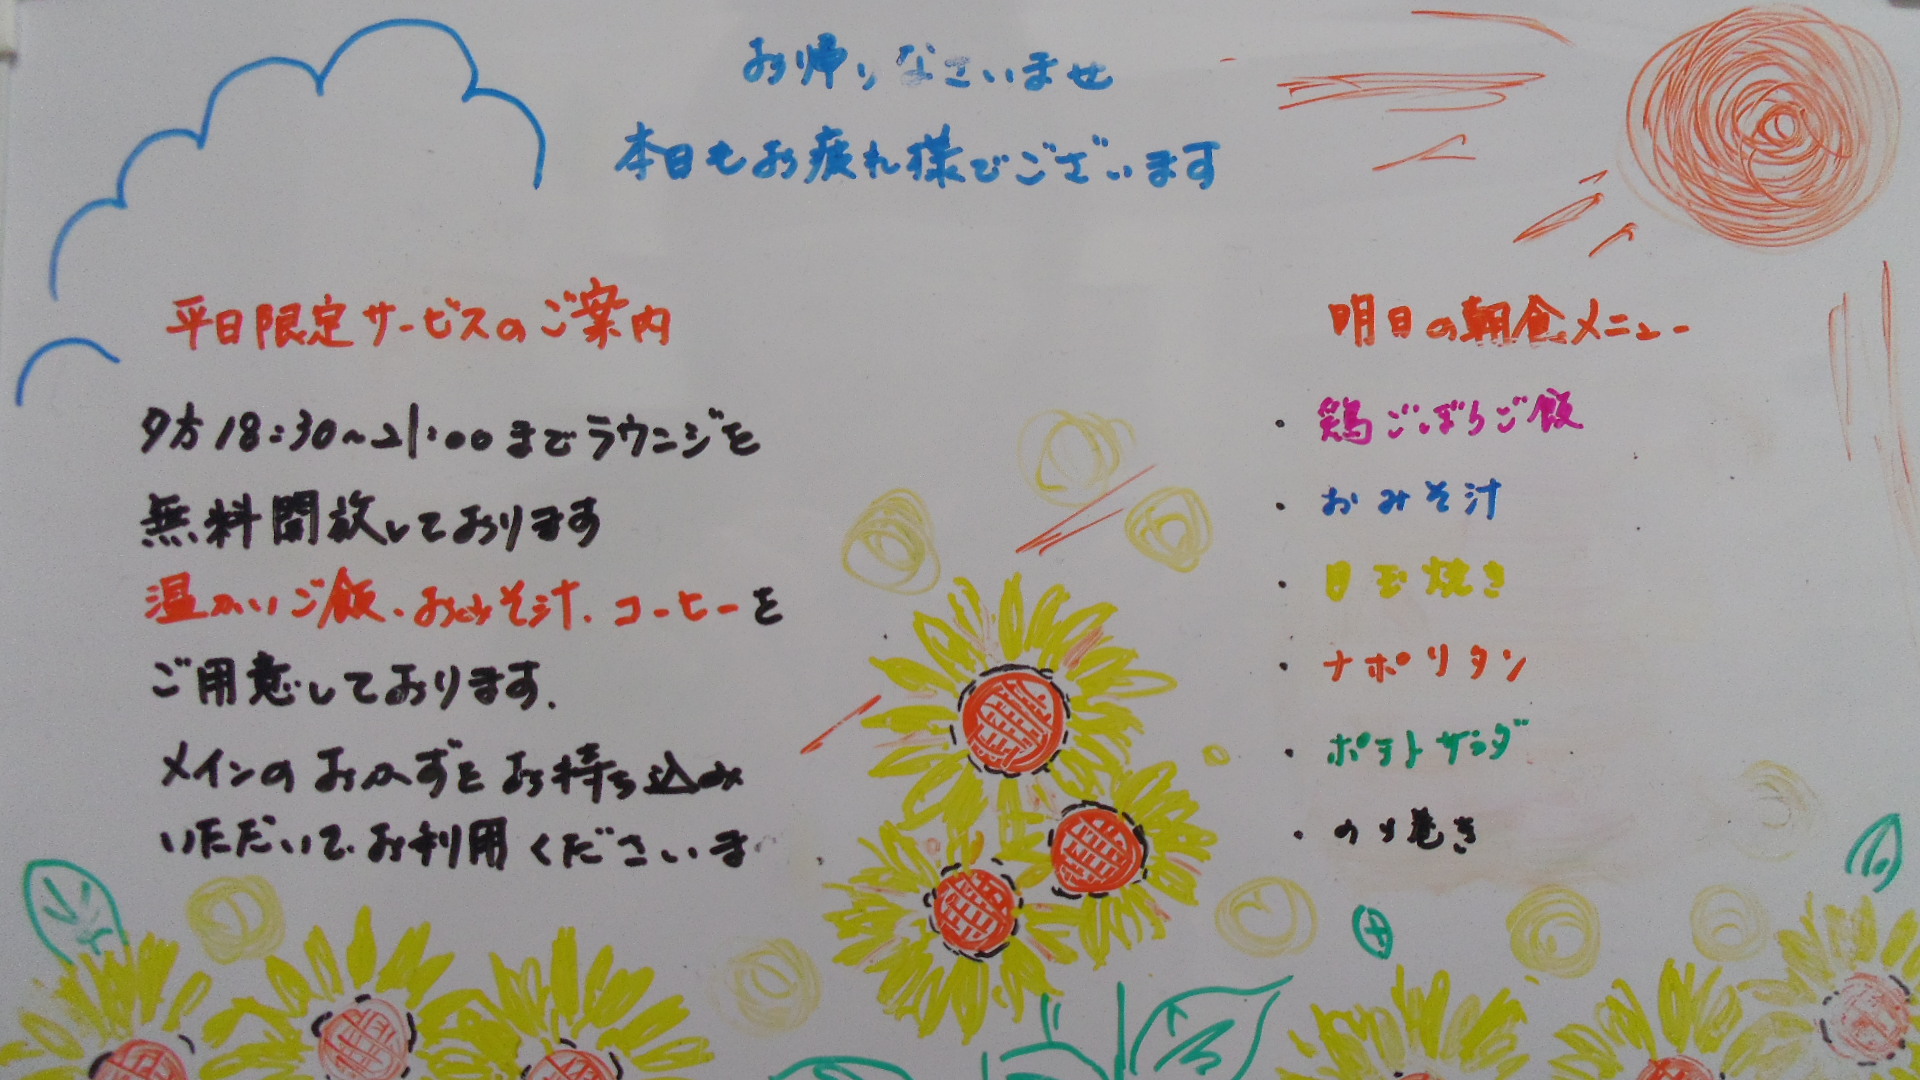 お帰りなさいませ
本日もお疲れ様でございます
平日限定サービスのご案内
夕方18:30~21:00までラウンジを
無料開放しております
温かいご飯、おみそ汁、コーヒーを
ご用意しております.
メインのおかずをお持ち込み
いただいて、お利用くださいま
明日の朝食メニュー
・鶏ごぼうご飯
・おみそ汁
・目玉焼き
・ナポリタン
・ポテトサラダ
・のり巻き